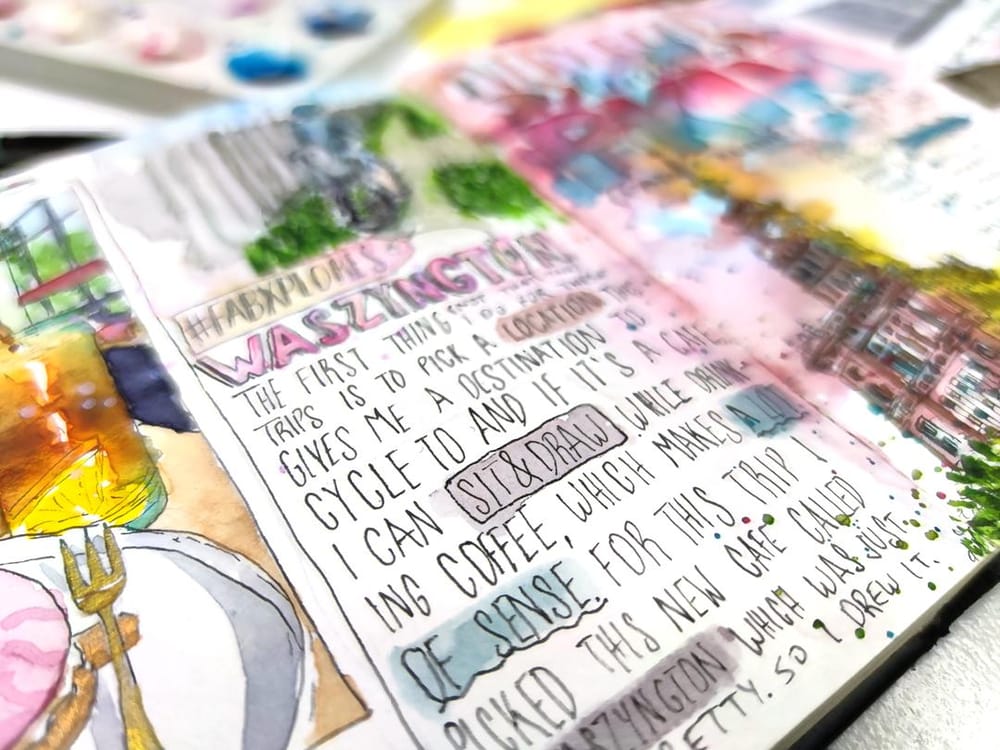 #FABXPLORES
WASZYNGTON
THE FIRST THING I DO FOR THESE
TRIPS IS TO PICK A LOCATION THIS
GIVES ME A DESTINATION TO
CYCLE TO AND IF IT'S A CAFE
I CAN SIT&DRAW WHILE DRINK-
ING COFFEE, WHICH MAKES A LOT
OF SENSE. FOR THIS TRIP I
PICKED THIS NEW CAFE CALLED
WASZYNGTON WHICH WAS JUST
PRETTY. SO I DREW IT.